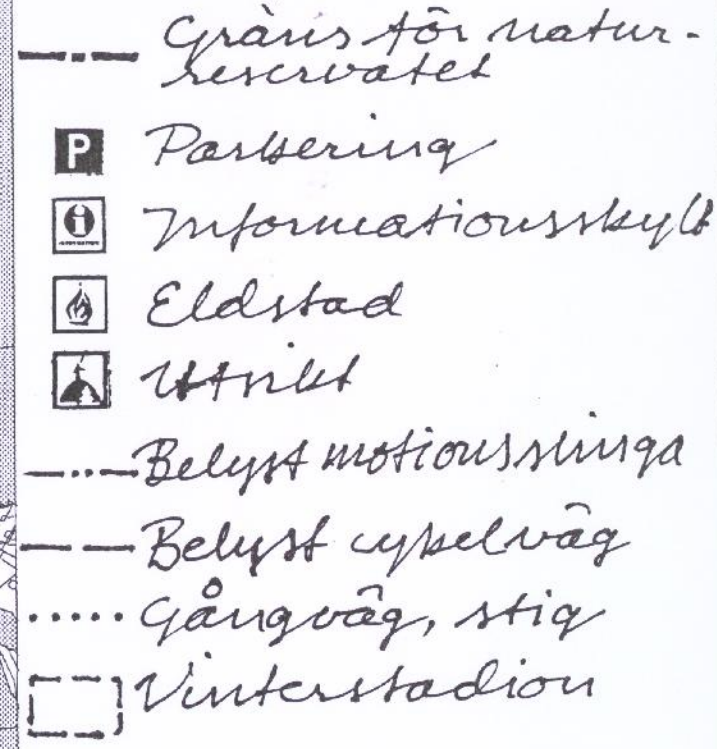 Gräns för natur-
reservatet
P Parkering
i Informationsskylt
Eldstad
Utsikt
Belyst motionsslinga
Belyst cykelväg
Gångväg, stig
Vinterstadion